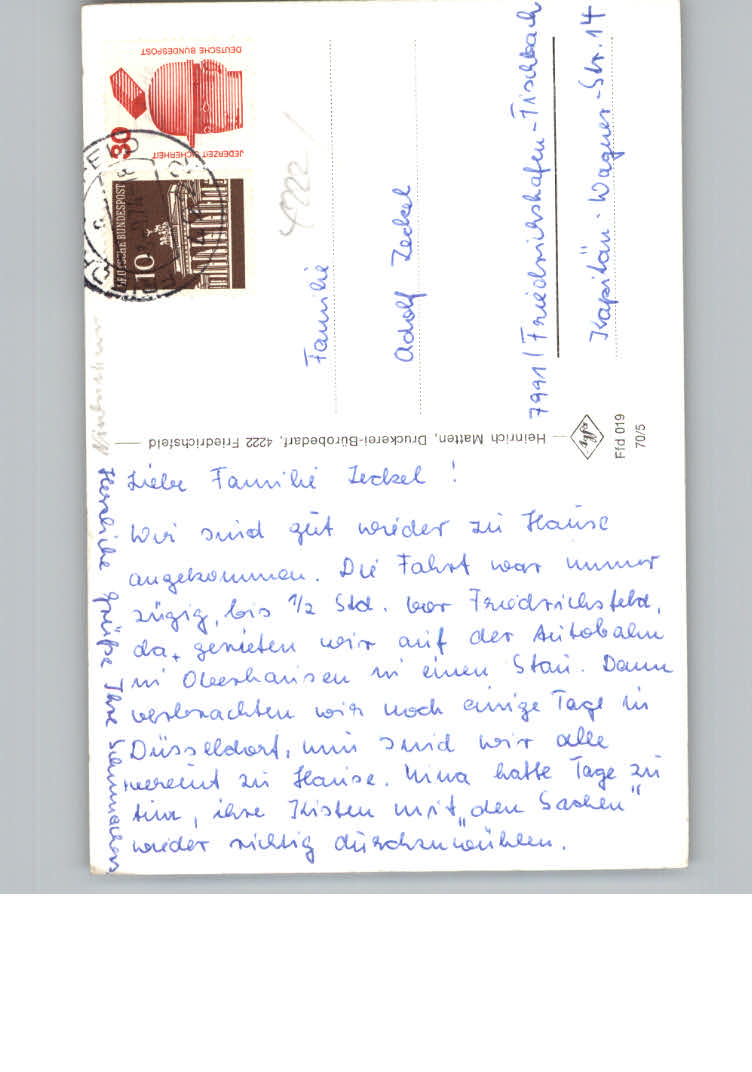 Liebe Familie Zeckel!
Wir sind gut wieder zu Hause
angekommen. Die Fahrt war immer
zügig, bis 1/2 Std. vor Friedrichsfeld,
da, gerieten wir auf der Autobahn
in Oberhausen in einen Stau. Dann
verbrachten wir noch einige Tage in
Düsseldorf, nun sind wir alle
vereint zu Hause. Nina hatte Tage zu
tun, ihre Kisten mit „den Sachen"
wieder richtig durchzuwühlen.
Herzliche Grüße Ihre
Familie
Adolf Zeckel
7991 / Friedrichshafen-Fischbach
Kapitän-Wagner-Str. 14
4222 /
DEUTSCHE BUNDESPOST
JEDERZEIT SICHERHEIT
30
DEUTSCHE BUNDESPOST
10
Heinrich Matten, Druckerei-Bürobedarf, 4222 Friedrichsfeld
Agfa
Ffd 019
70/5